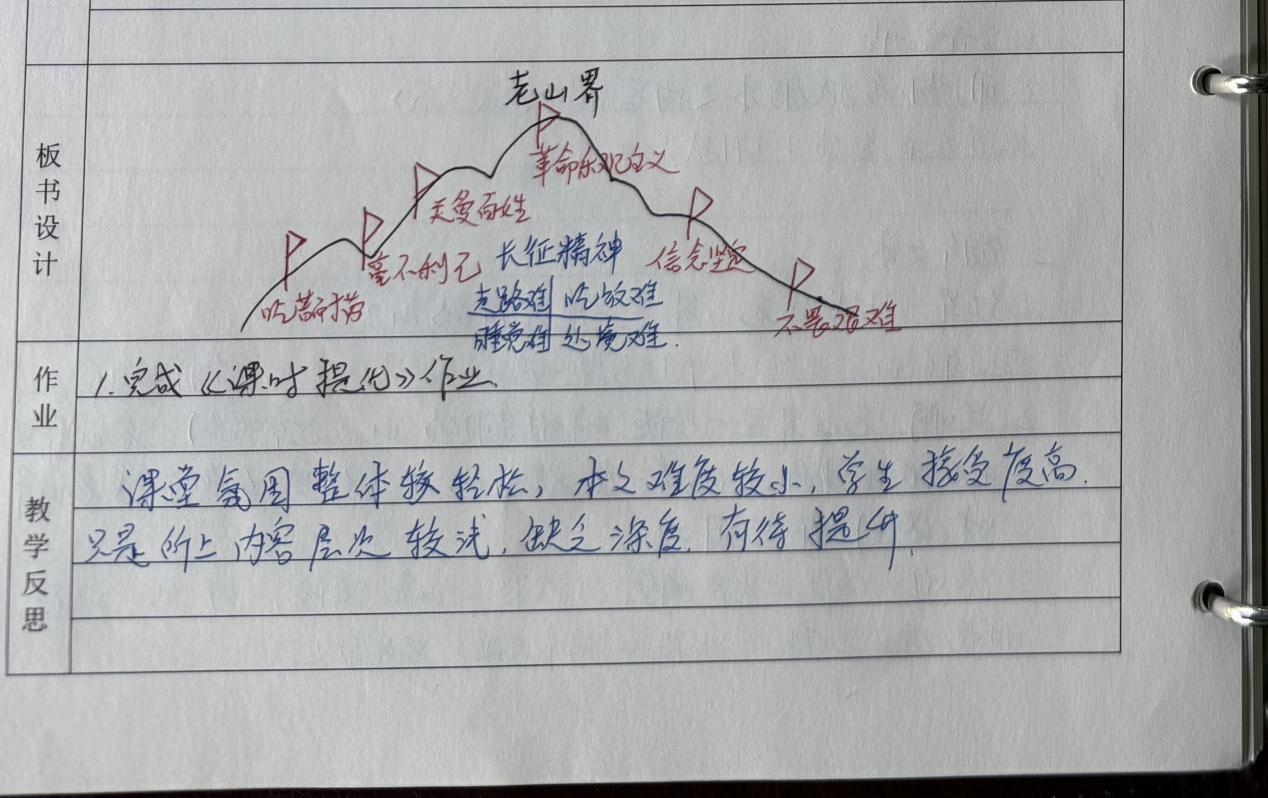 板书设计
老山界
革命乐观主义
关爱百姓
信念坚定
毫不利己
长征精神
吃苦耐劳
走路难 吃饭难
不畏艰难
睡觉难 处境难.
作业
1.完成《课时提优》作业.
教学反思
课堂氛围整体较轻松，本文难度较小，学生接受度高.
只是所上内容层次较浅，缺乏深度，有待提升.